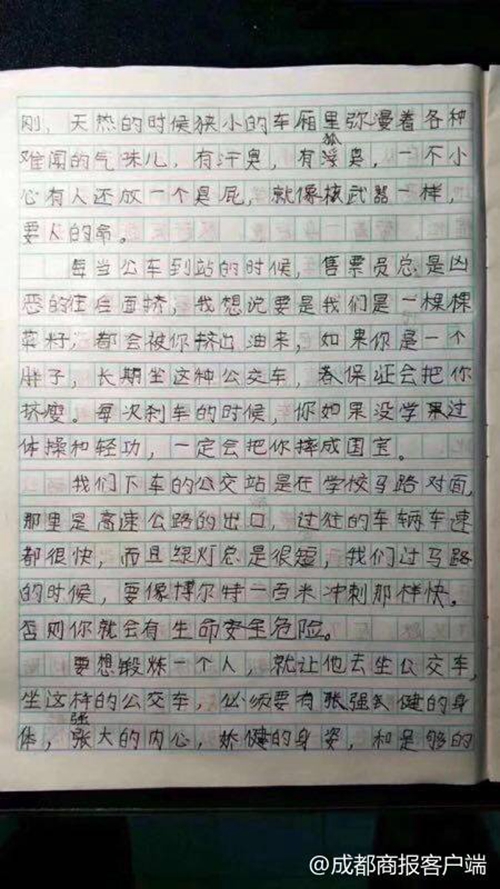 刚、天热的时候狭小的车厢里弥漫着各种
难闻的气味儿，有汗臭，有狐臭，一不小
心有人还放一个臭屁，就像核武器一样，
要人的命。
每当公车到站的时候，售票员总是凶
恶的往后面挤，我想说要是我们是一棵棵
菜籽，都会被你挤出油来，如果你是一个
胖子，长期坐这种公交车，保证会把你
挤瘦。每次刹车的时候，你如果没学过
体操和轻功，一定会把你摔成国宝。
我们下车的公交站是在学校马路对面，
那里是高速公路的出口，过往的车辆车速
都很快，而且绿灯总是很短，我们过马路
的时候，要像博尔特一百米冲刺那样快。
否则你就会有生命安全危险。
要想锻炼一个人，就让他去坐公交车，
坐这样的公交车，必须要有强健的身
体，强大的内心，娇健的身姿，和足够的
@成都商报客户端